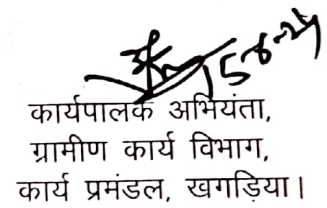 15-6-24
कार्यपालक अभियंता,
ग्रामीण कार्य विभाग,
कार्य प्रमंडल, खगड़िया।